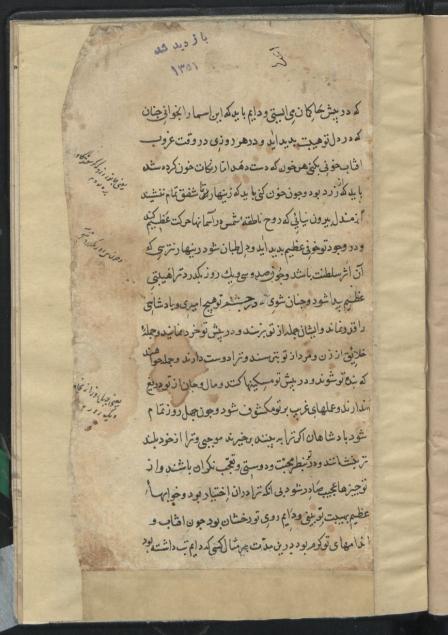 باز دید شد
۱۳۵۱
که در پیش حاکمان می ایستی و دایم باید که این اسما را بخوانی چنان
که در دل تو هیبت پدید اید و در هر روزی در وقت غروب
افتاب خونی بکنی هر خون که دست دهد اما رنکات خون کرده شده
باید که زرد بود و چون خون کنی باید که زینهار تا شفق تمام ننشیند
از مندل بیرون نیایی که روح ناطقه شمس در آسمانها حرکت عظیم کند
و در وجود تو خوفی عظیم پدید اید و دل طپان شود زینهار نترسی که
آن اثر سلطنت باشد و چون صد و سی و یک روز بکذرد ترا هیبتی
عظیم پیدا شود و چنان شوی که در چشم تو هیچ امیری و پادشاهی
را قدر نماند و ایشان جمله از تو بترسند و در پیش تو خرد نمایند و جمله
خلایق از زن و مرد از تو بترسند و ترا دوست دارند و جمله خواهند
که بنده تو شوند و در پیش تو مسکینها کنند و مال و جان از تو دریغ
ندارند و عملهای غریب بر تو مکشوف شود و چون چهل روز تمام
شود پادشاهان اکر ترا ببینند برخیزند و ترا از خود بلند
تر بنشانند و در تو بنظر محبت و دوستی و تعجب نکران باشند و از
تو چیزها عجیب صادر شود بی انکه ترا در ان اختیار بود و خوابهاء
عظیم بهیبت تو بینی و دایم روی تو رخشان بود چون افتاب و
اندامهای تو کرم بود درین مدت بر مثال کسی که دایم تب داشته بود